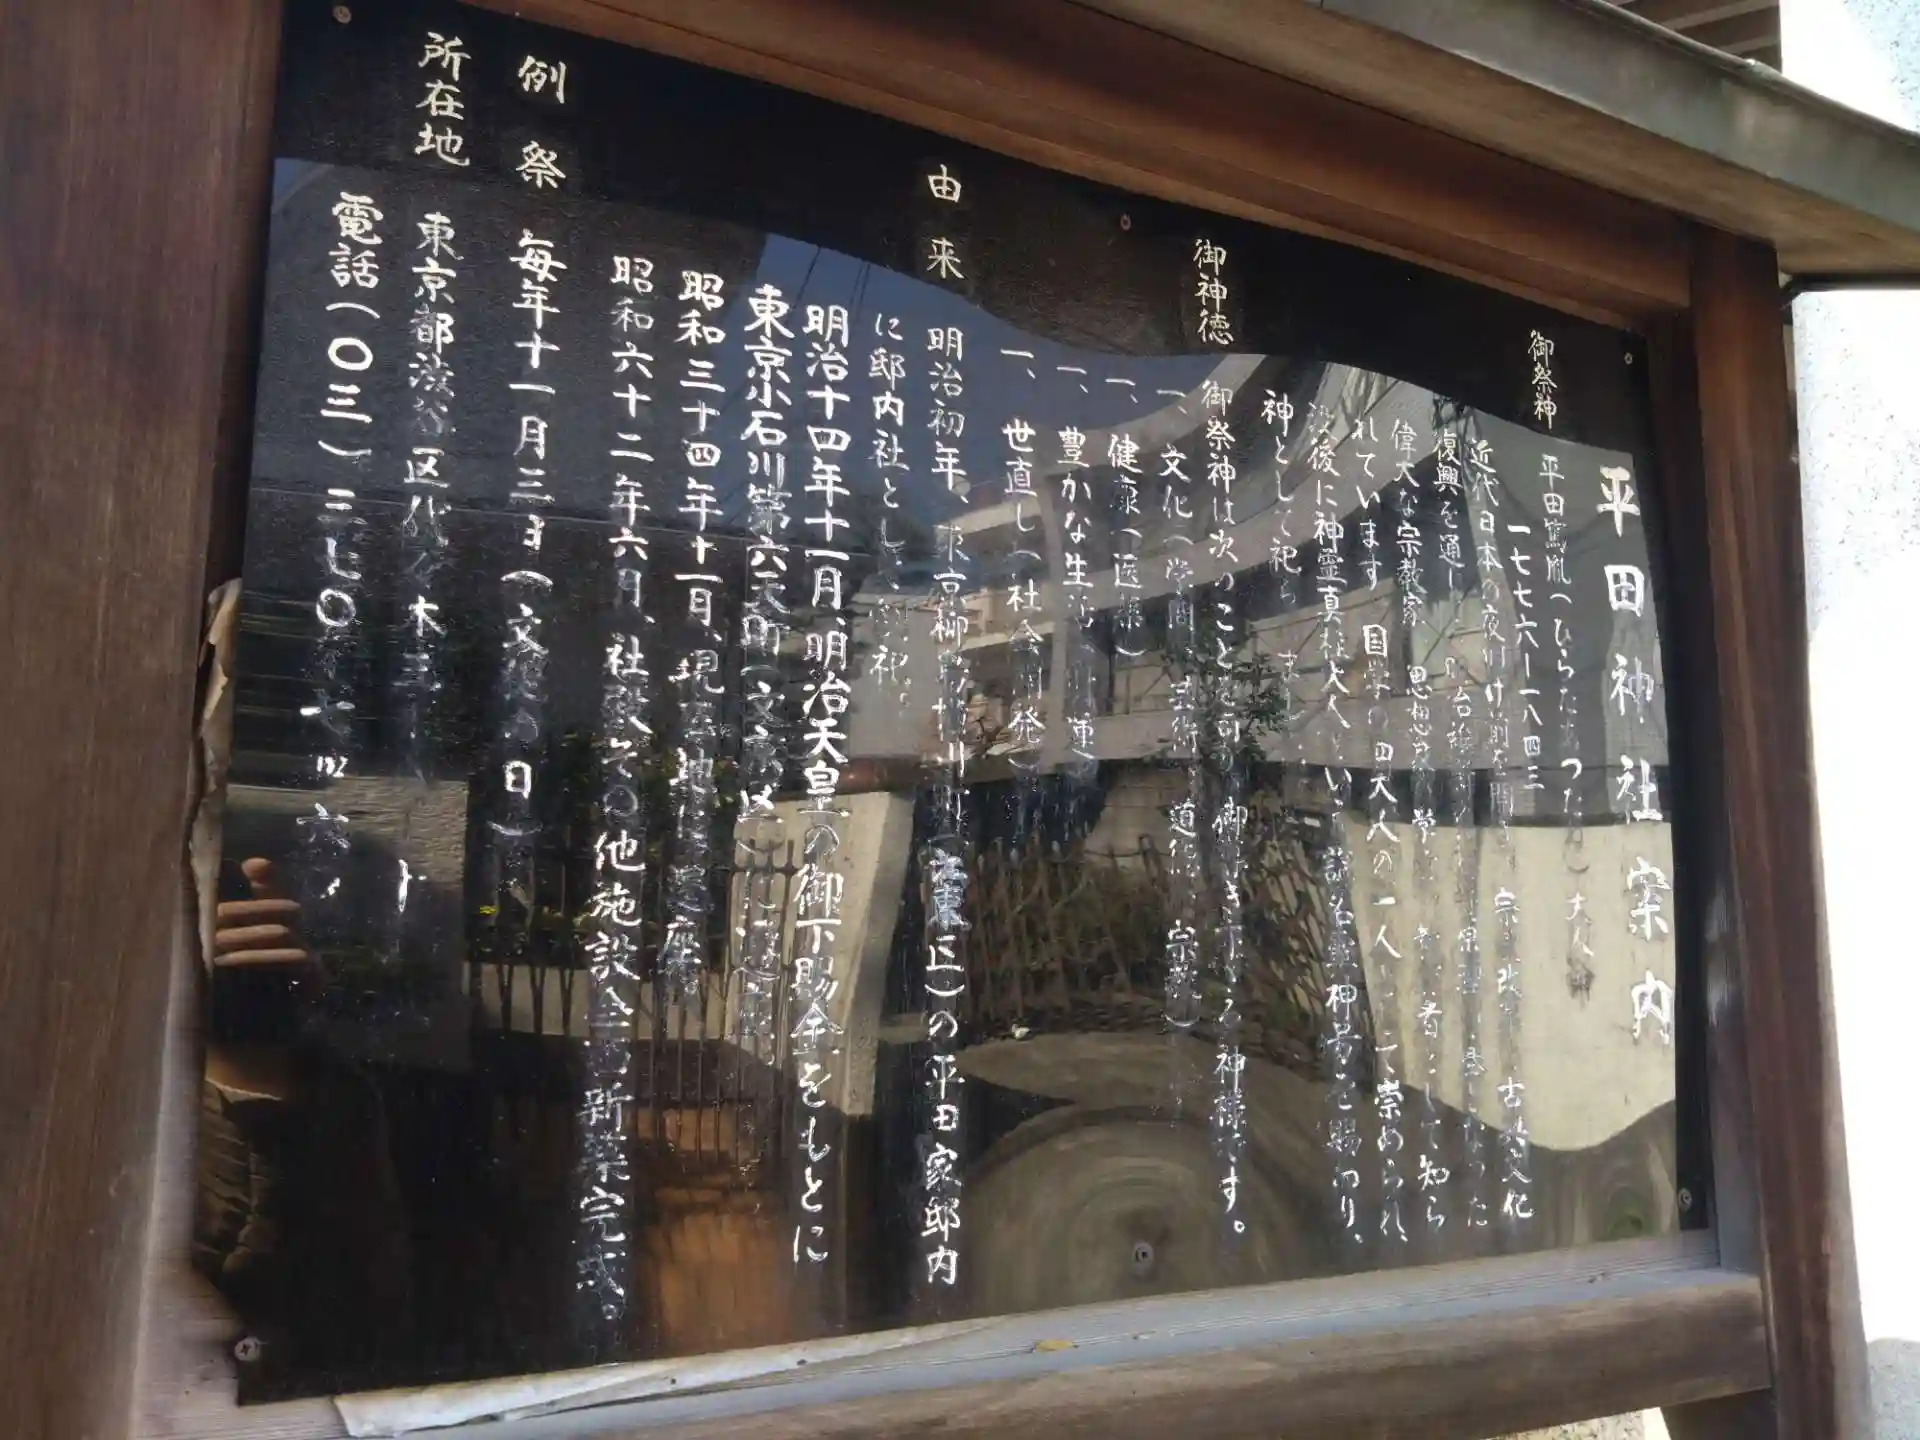 平田神社案内
御祭神
平田篤胤(ひらたあつたね)大人
一七七六—一八四三
近代日本の夜明け前を開き、宗 改 古 文化
復興を通し 明治維新の原 となった
偉大な宗教家 思想 学 者として知ら
れています 国学の四大人の一人として崇められ、
没後に神霊真柱大人という諡名 神号を賜わり、
神として祀られます
御神徳
御祭神は次のことを司り御 き下さる神様です。
一、文化(学問、芸術、道徳、宗教)
一、健康(医薬)
一、豊かな生活(開運)
一、世直し(社会開発)
由来
明治初年、東京柳 町(台東区)の平田家邸内
に邸内社として 祀。
明治十四年十一月、明治天皇の御下賜金をもとに
東京小石川第六天町(文京区)に遷座。
昭和三十四年十一月、現在地に遷座。
昭和六十二年六月、社殿その他施設全面新築完成。
例祭
毎年十一月三日(文化の日)
所在地
東京都渋谷区代々木三
電話(〇三)三七〇 七四六